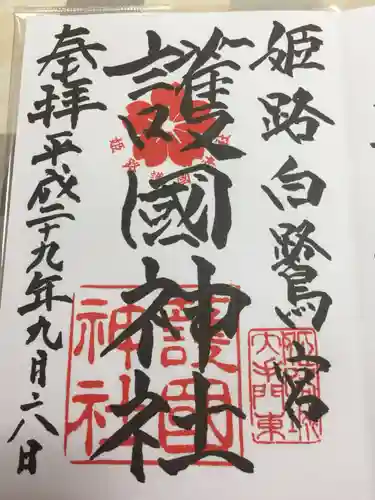 姫路白鷺宮
護國神社
奉拝平成二十九年九月二八日
護国
神社
大手門東